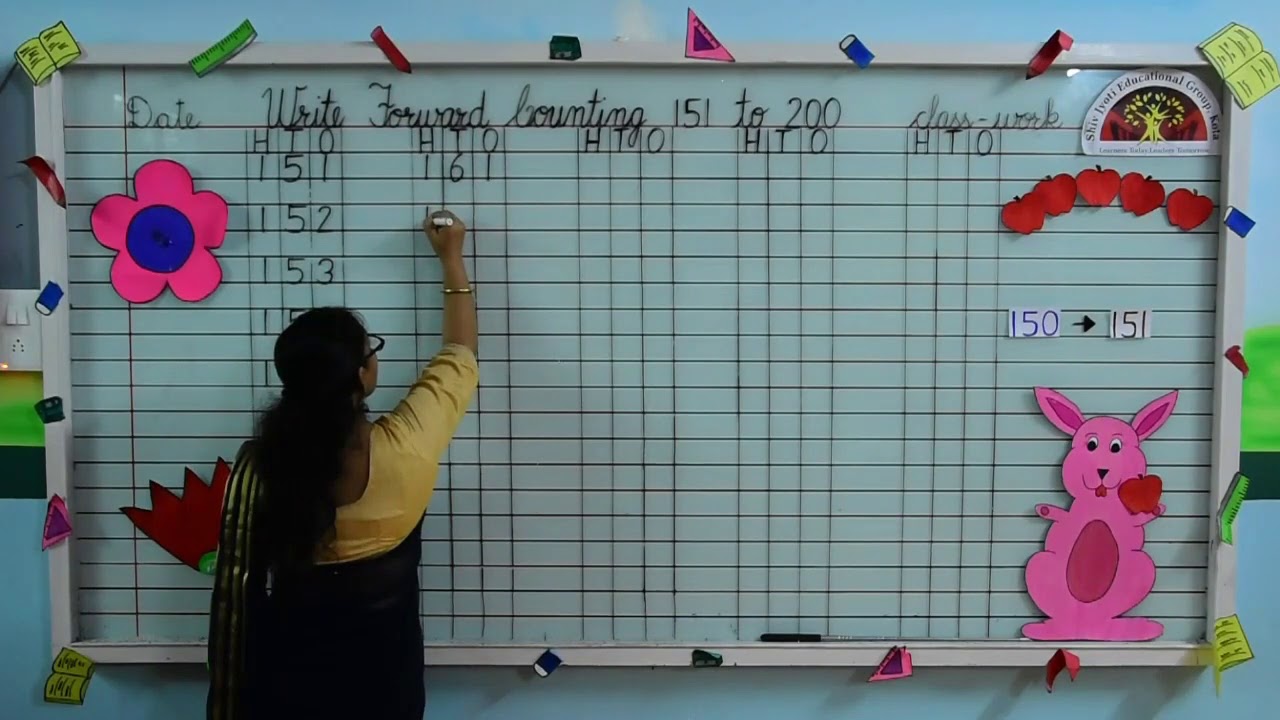 Date Write Forward Counting 151 to 200 class-work
H T O H T O H T O H T O H T O
1 5 1 1 6 1
1 5 2 1
1 5 3
1 5
1
150 → 151
Shiv Jyoti Educational Group, Kota
Learners Today, Leaders Tomorrow